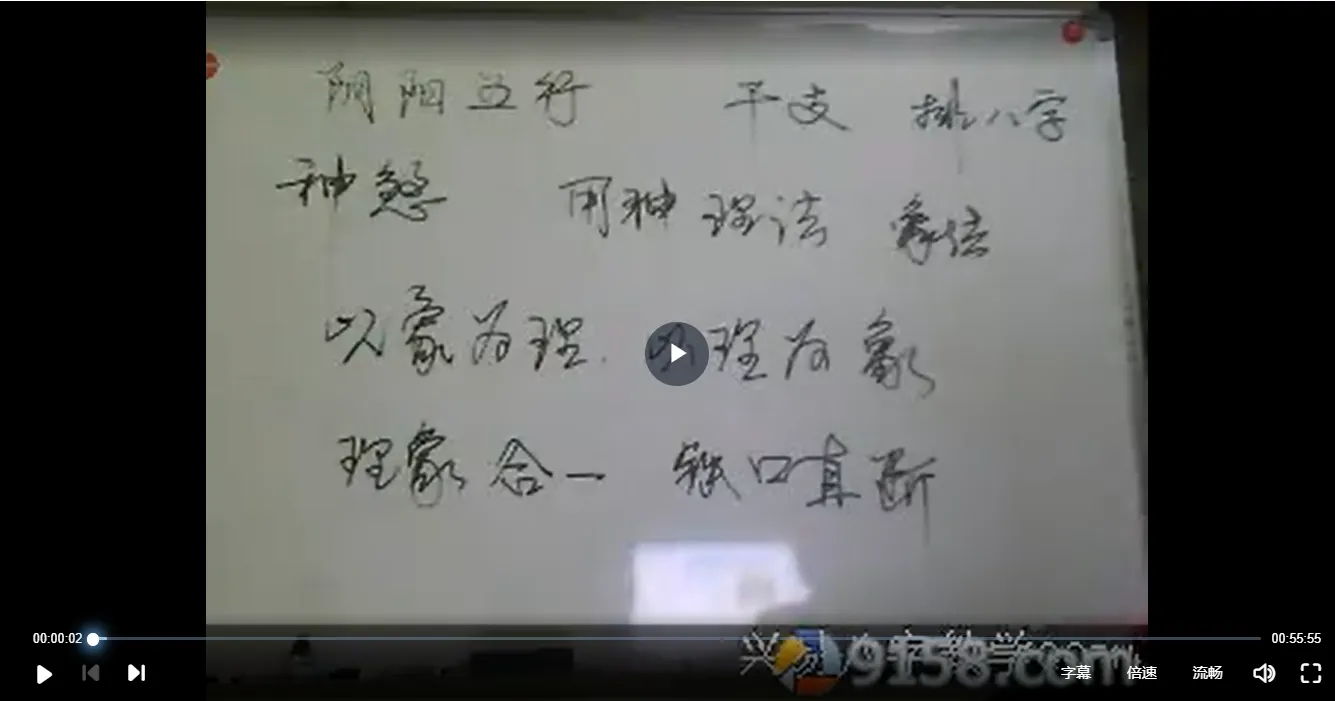 阴阳五行 干支 排八字
神煞 用神 理法 象法
以象为理. 以理为象
理象合一 铁口直断
9158.com
00:00:02 00:55:55
字幕 倍速 流畅